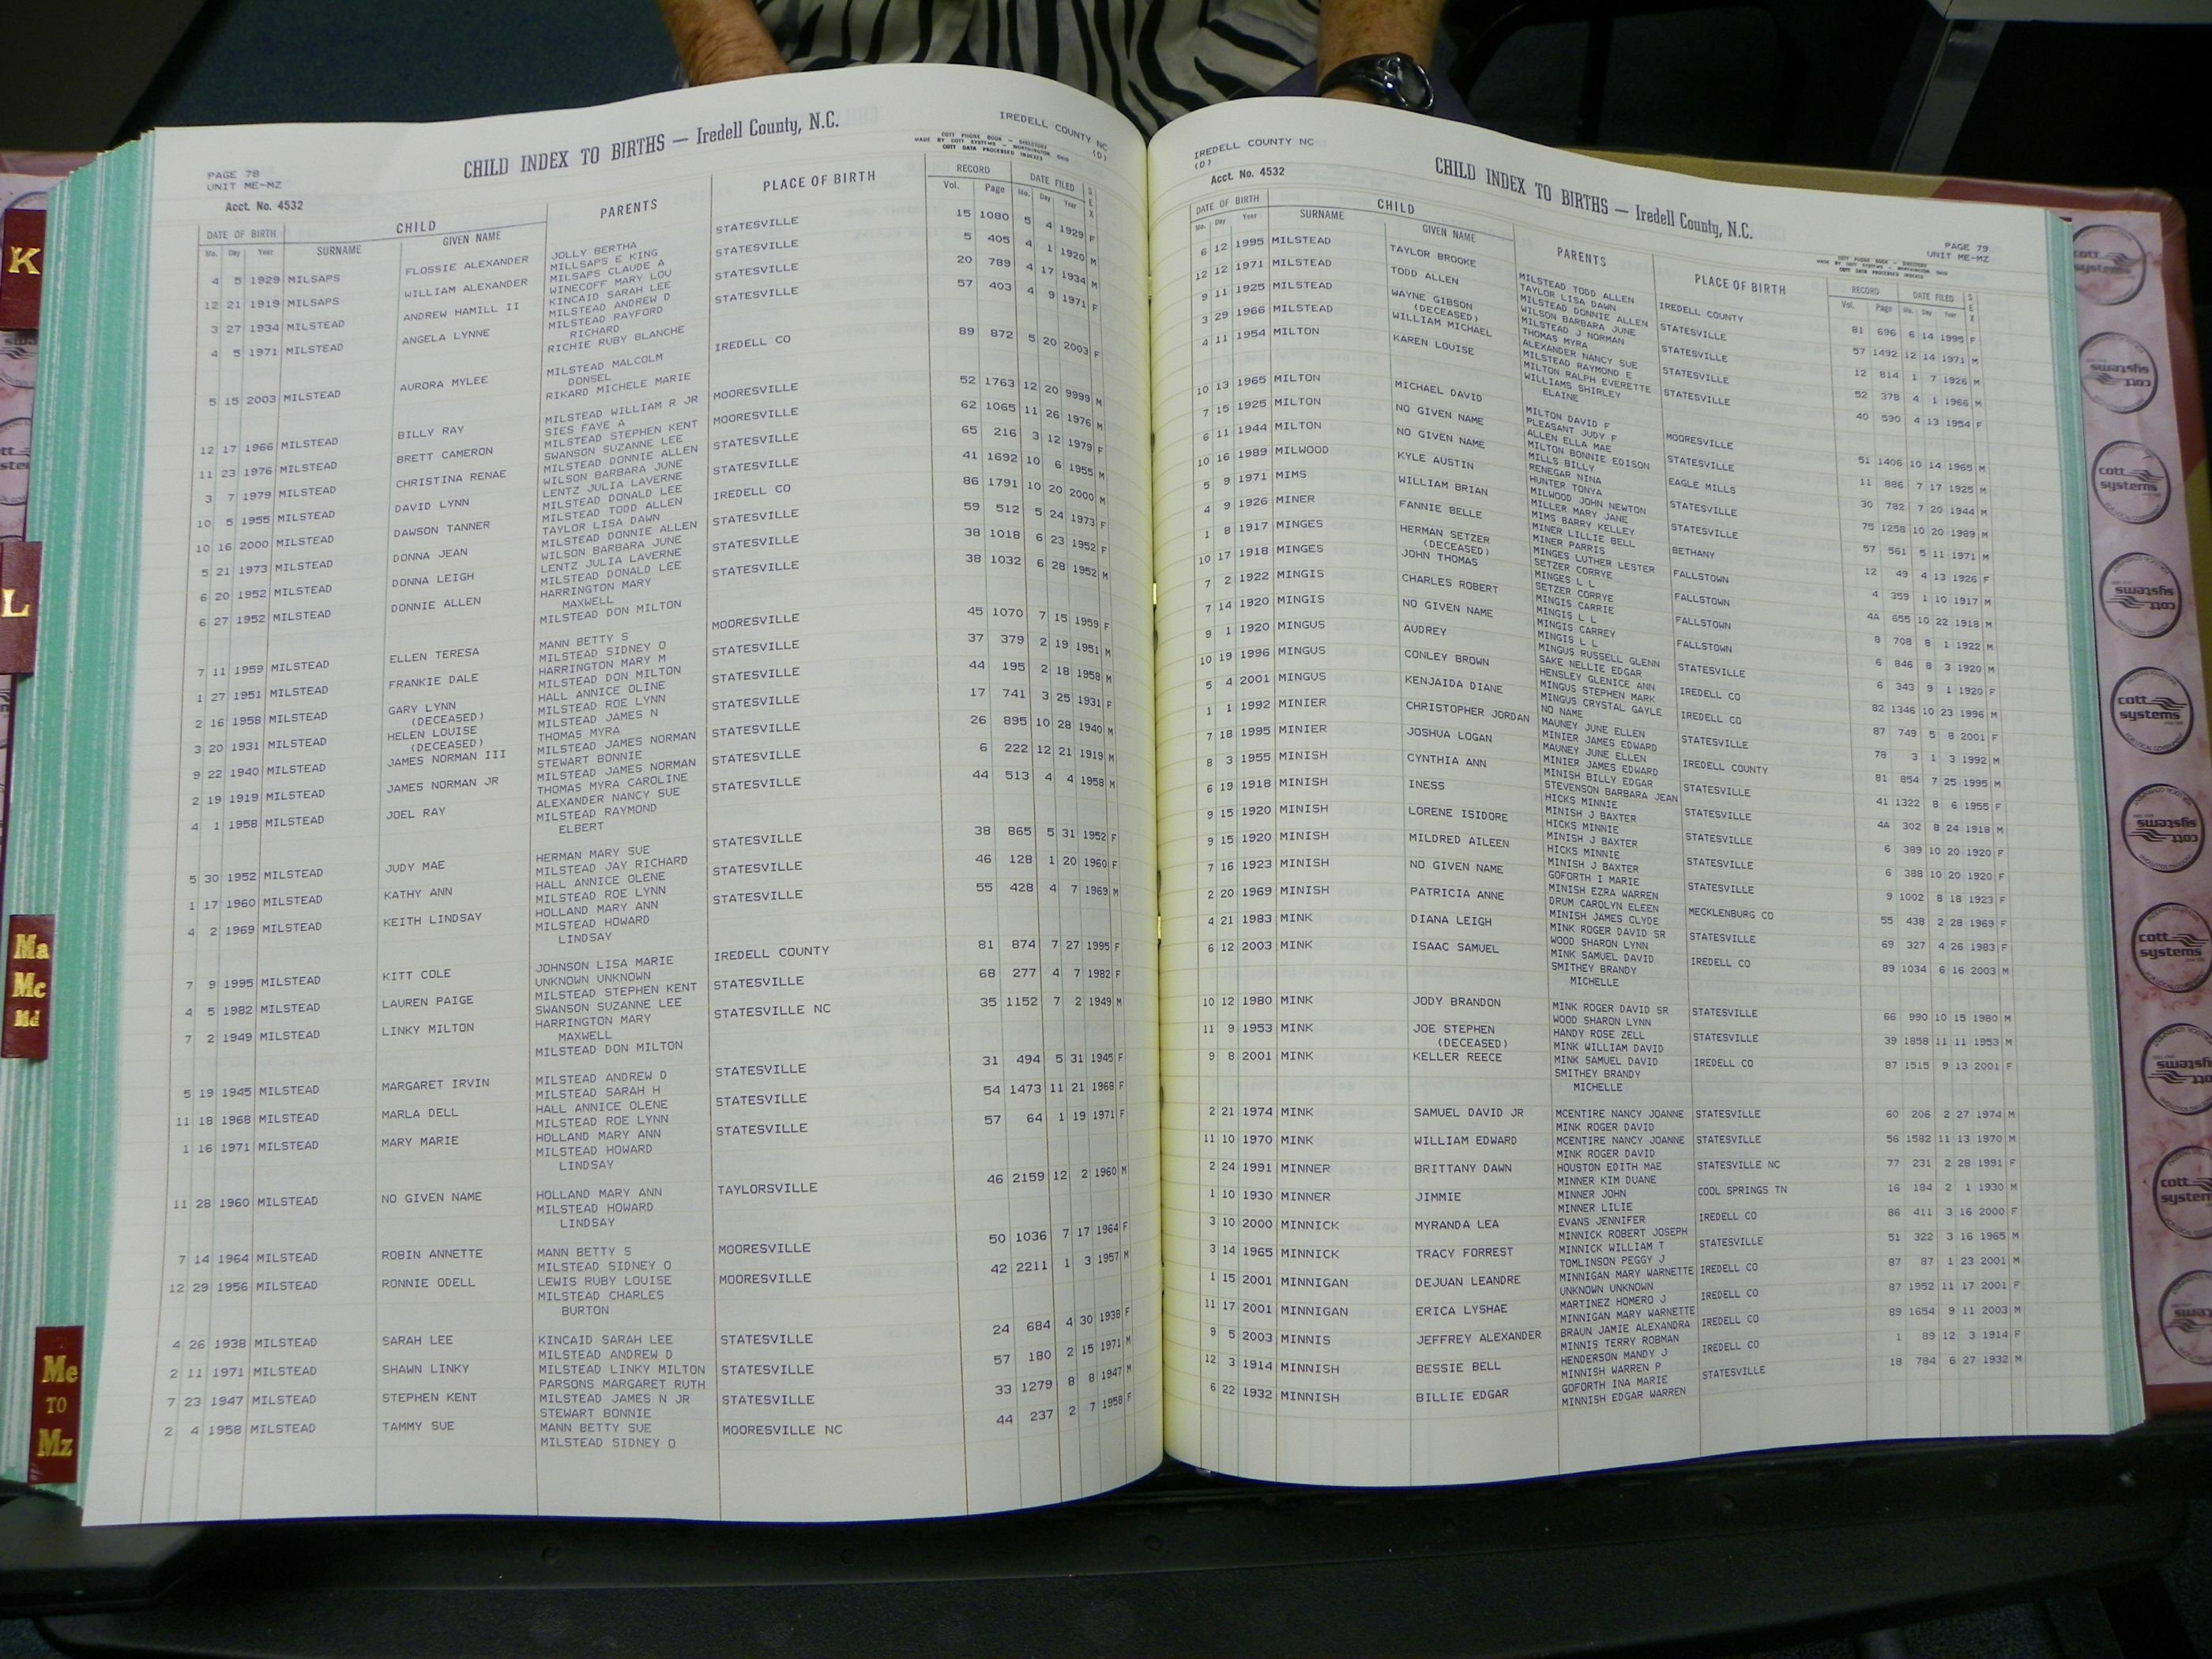 IREDELL COUNTY NC
(D)
CHILD INDEX TO BIRTHS — Iredell County, N.C.
COTT PHONE BOOK - DIRECTORY
MADE BY COTT SYSTEMS - WORTHINGTON, OHIO
COTT DATA PROCESSED INDEXES
PAGE 78
UNIT ME-MZ
Acct. No. 4532
DATE OF BIRTH CHILD PARENTS PLACE OF BIRTH RECORD DATE FILED SEX
Mo. Day Year SURNAME GIVEN NAME Vol. Page Mo. Day Year
4 5 1929 MILSAPS FLOSSIE ALEXANDER JOLLY BERTHA STATESVILLE 15 1080 5 4 1929 F
MILLSAPS E KING
12 21 1919 MILSAPS WILLIAM ALEXANDER MILSAPS CLAUDE A STATESVILLE 5 405 4 1 1920 M
WINECOFF MARY LOU
3 27 1934 MILSTEAD ANDREW HAMILL II KINCAID SARAH LEE STATESVILLE 20 789 4 17 1934 M
MILSTEAD ANDREW D
4 5 1971 MILSTEAD ANGELA LYNNE MILSTEAD RAYFORD STATESVILLE 57 403 4 9 1971 F
RICHARD
RICHIE RUBY BLANCHE
5 15 2003 MILSTEAD AURORA MYLEE MILSTEAD MALCOLM IREDELL CO 89 872 5 20 2003 F
DONSEL
RIKARD MICHELE MARIE
12 17 1966 MILSTEAD BILLY RAY MILSTEAD WILLIAM R JR MOORESVILLE 52 1763 12 20 9999 M
SIES FAYE A
11 23 1976 MILSTEAD BRETT CAMERON MILSTEAD STEPHEN KENT MOORESVILLE 62 1065 11 26 1976 M
SWANSON SUZANNE LEE
3 7 1979 MILSTEAD CHRISTINA RENAE MILSTEAD DONNIE ALLEN STATESVILLE 65 216 3 12 1979 F
WILSON BARBARA JUNE
10 5 1955 MILSTEAD DAVID LYNN LENTZ JULIA LAVERNE STATESVILLE 41 1692 10 6 1955 M
MILSTEAD DONALD LEE
10 16 2000 MILSTEAD DAWSON TANNER MILSTEAD TODD ALLEN IREDELL CO 86 1791 10 20 2000 M
TAYLOR LISA DAWN
5 21 1973 MILSTEAD DONNA JEAN MILSTEAD DONNIE ALLEN STATESVILLE 59 512 5 24 1973 F
WILSON BARBARA JUNE
6 20 1952 MILSTEAD DONNA LEIGH LENTZ JULIA LAVERNE STATESVILLE 38 1018 6 23 1952 F
MILSTEAD DONALD LEE
6 27 1952 MILSTEAD DONNIE ALLEN HARRINGTON MARY STATESVILLE 38 1032 6 28 1952 M
MAXWELL
MILSTEAD DON MILTON
7 11 1959 MILSTEAD ELLEN TERESA MANN BETTY S MOORESVILLE 45 1070 7 15 1959 F
MILSTEAD SIDNEY O
1 27 1951 MILSTEAD FRANKIE DALE HARRINGTON MARY M STATESVILLE 37 379 2 19 1951 M
MILSTEAD DON MILTON
2 16 1958 MILSTEAD GARY LYNN HALL ANNICE OLINE STATESVILLE 44 195 2 18 1958 M
(DECEASED) MILSTEAD ROE LYNN
3 20 1931 MILSTEAD HELEN LOUISE MILSTEAD JAMES N STATESVILLE 17 741 3 25 1931 F
(DECEASED) THOMAS MYRA
9 22 1940 MILSTEAD JAMES NORMAN III MILSTEAD JAMES NORMAN STATESVILLE 26 895 10 28 1940 M
STEWART BONNIE
2 19 1919 MILSTEAD JAMES NORMAN JR MILSTEAD JAMES NORMAN STATESVILLE 6 222 12 21 1919 M
THOMAS MYRA CAROLINE
4 1 1958 MILSTEAD JOEL RAY ALEXANDER NANCY SUE STATESVILLE 44 513 4 4 1958 M
MILSTEAD RAYMOND
ELBERT
5 30 1952 MILSTEAD JUDY MAE HERMAN MARY SUE STATESVILLE 38 865 5 31 1952 F
MILSTEAD JAY RICHARD
1 17 1960 MILSTEAD KATHY ANN HALL ANNICE OLENE STATESVILLE 46 128 1 20 1960 F
MILSTEAD ROE LYNN
4 2 1969 MILSTEAD KEITH LINDSAY HOLLAND MARY ANN STATESVILLE 55 428 4 7 1969 M
MILSTEAD HOWARD
LINDSAY
7 9 1995 MILSTEAD KITT COLE JOHNSON LISA MARIE IREDELL COUNTY 81 874 7 27 1995 F
UNKNOWN UNKNOWN
4 5 1982 MILSTEAD LAUREN PAIGE MILSTEAD STEPHEN KENT STATESVILLE 68 277 4 7 1982 F
SWANSON SUZANNE LEE
7 2 1949 MILSTEAD LINKY MILTON HARRINGTON MARY STATESVILLE NC 35 1152 7 2 1949 M
MAXWELL
MILSTEAD DON MILTON
5 19 1945 MILSTEAD MARGARET IRVIN MILSTEAD ANDREW D STATESVILLE 31 494 5 31 1945 F
MILSTEAD SARAH H
11 18 1968 MILSTEAD MARLA DELL HALL ANNICE OLENE STATESVILLE 54 1473 11 21 1968 F
MILSTEAD ROE LYNN
1 16 1971 MILSTEAD MARY MARIE HOLLAND MARY ANN STATESVILLE 57 64 1 19 1971 F
MILSTEAD HOWARD
LINDSAY
11 28 1960 MILSTEAD NO GIVEN NAME HOLLAND MARY ANN TAYLORSVILLE 46 2159 12 2 1960 M
MILSTEAD HOWARD
LINDSAY
7 14 1964 MILSTEAD ROBIN ANNETTE MANN BETTY S MOORESVILLE 50 1036 7 17 1964 F
MILSTEAD SIDNEY O
12 29 1956 MILSTEAD RONNIE ODELL LEWIS RUBY LOUISE MOORESVILLE 42 2211 1 3 1957 M
MILSTEAD CHARLES
BURTON
4 26 1938 MILSTEAD SARAH LEE KINCAID SARAH LEE STATESVILLE 24 684 4 30 1938 F
MILSTEAD ANDREW D
2 11 1971 MILSTEAD SHAWN LINKY MILSTEAD LINKY MILTON STATESVILLE 57 180 2 15 1971 M
PARSONS MARGARET RUTH
7 23 1947 MILSTEAD STEPHEN KENT MILSTEAD JAMES N JR STATESVILLE 33 1279 8 8 1947 M
STEWART BONNIE
2 4 1958 MILSTEAD TAMMY SUE MANN BETTY SUE MOORESVILLE NC 44 237 2 7 1958 F
MILSTEAD SIDNEY O
K
L
Ma
Mc
Md
Me
TO
Mz
IREDELL COUNTY NC
(D)
Acct. No. 4532
CHILD INDEX TO BIRTHS — Iredell County, N.C.
PAGE 79
UNIT ME-MZ
COTT PHONE BOOK - DIRECTORY
MADE BY COTT SYSTEMS - WORTHINGTON, OHIO
COTT DATA PROCESSED INDEXES
DATE OF BIRTH CHILD PARENTS PLACE OF BIRTH RECORD DATE FILED SEX
Mo. Day Year SURNAME GIVEN NAME Vol. Page Mo. Day Year
6 12 1995 MILSTEAD TAYLOR BROOKE MILSTEAD TODD ALLEN IREDELL COUNTY 81 696 6 14 1995 F
TAYLOR LISA DAWN
12 12 1971 MILSTEAD TODD ALLEN MILSTEAD DONNIE ALLEN STATESVILLE 57 1492 12 14 1971 M
WILSON BARBARA JUNE
9 11 1925 MILSTEAD WAYNE GIBSON MILSTEAD J NORMAN STATESVILLE 12 814 1 7 1926 M
(DECEASED) THOMAS MYRA
3 29 1966 MILSTEAD WILLIAM MICHAEL ALEXANDER NANCY SUE STATESVILLE 52 378 4 1 1966 M
MILSTEAD RAYMOND E
4 11 1954 MILTON KAREN LOUISE MILTON RALPH EVERETTE STATESVILLE 40 590 4 13 1954 F
WILLIAMS SHIRLEY
ELAINE
10 13 1965 MILTON MICHAEL DAVID MILTON DAVID F MOORESVILLE 51 1406 10 14 1965 M
PLEASANT JUDY F
7 15 1925 MILTON NO GIVEN NAME ALLEN ELLA MAE STATESVILLE 11 886 7 17 1925 M
MILTON BONNIE EDISON
6 11 1944 MILTON NO GIVEN NAME MILLS BILLY EAGLE MILLS 30 782 7 20 1944 M
RENEGAR NINA
10 16 1989 MILWOOD KYLE AUSTIN HUNTER TONYA STATESVILLE 75 1258 10 20 1989 M
MILWOOD JOHN NEWTON
5 9 1971 MIMS WILLIAM BRIAN MILLER MARY JANE BETHANY 57 561 5 11 1971 M
MIMS BARRY KELLEY
4 9 1926 MINER FANNIE BELLE MINER LILLIE BELL FALLSTOWN 12 49 4 13 1926 F
MINER PARRIS
1 8 1917 MINGES HERMAN SETZER MINGES LUTHER LESTER FALLSTOWN 4 359 1 10 1917 M
(DECEASED) SETZER CORRYE
10 17 1918 MINGES JOHN THOMAS MINGES L L FALLSTOWN 4A 655 10 22 1918 M
SETZER CORRYE
7 2 1922 MINGIS CHARLES ROBERT MINGIS CARRIE FALLSTOWN 8 708 8 1 1922 M
MINGIS L L
7 14 1920 MINGIS NO GIVEN NAME MINGIS CARREY STATESVILLE 6 846 8 3 1920 M
MINGIS L L
9 1 1920 MINGUS AUDREY MINGUS RUSSELL GLENN IREDELL CO 6 343 9 1 1920 F
SAKE NELLIE EDGAR
10 19 1996 MINGUS CONLEY BROWN HENSLEY GLENICE ANN IREDELL CO 82 1346 10 23 1996 M
MINGUS STEPHEN MARK
5 4 2001 MINGUS KENJAIDA DIANE MINGUS CRYSTAL GAYLE STATESVILLE 87 749 5 8 2001 F
NO NAME
1 1 1992 MINIER CHRISTOPHER JORDAN MAUNEY JUNE ELLEN IREDELL COUNTY 78 3 1 3 1992 M
MINIER JAMES EDWARD
7 18 1995 MINIER JOSHUA LOGAN MAUNEY JUNE ELLEN STATESVILLE 81 854 7 25 1995 M
MINIER JAMES EDWARD
8 3 1955 MINISH CYNTHIA ANN MINISH BILLY EDGAR STATESVILLE 41 1322 8 6 1955 F
STEVENSON BARBARA JEAN
6 19 1918 MINISH INESS HICKS MINNIE STATESVILLE 4A 302 8 24 1918 M
MINISH J BAXTER
9 15 1920 MINISH LORENE ISIDORE HICKS MINNIE STATESVILLE 6 389 10 20 1920 F
MINISH J BAXTER
9 15 1920 MINISH MILDRED AILEEN HICKS MINNIE STATESVILLE 6 388 10 20 1920 F
MINISH J BAXTER
7 16 1923 MINISH NO GIVEN NAME GOFORTH I MARIE MECKLENBURG CO 9 1002 8 18 1923 F
MINISH EZRA WARREN
2 20 1969 MINISH PATRICIA ANNE DRUM CAROLYN ELEEN STATESVILLE 55 438 2 28 1969 F
MINISH JAMES CLYDE
4 21 1983 MINK DIANA LEIGH MINK ROGER DAVID SR STATESVILLE 69 327 4 26 1983 F
WOOD SHARON LYNN
6 12 2003 MINK ISAAC SAMUEL MINK SAMUEL DAVID IREDELL CO 89 1034 6 16 2003 M
SMITHEY BRANDY
MICHELLE
10 12 1980 MINK JODY BRANDON MINK ROGER DAVID SR STATESVILLE 66 990 10 15 1980 M
WOOD SHARON LYNN
11 9 1953 MINK JOE STEPHEN HANDY ROSE ZELL STATESVILLE 39 1858 11 11 1953 M
(DECEASED) MINK WILLIAM DAVID
9 8 2001 MINK KELLER REECE MINK SAMUEL DAVID IREDELL CO 87 1515 9 13 2001 F
SMITHEY BRANDY
MICHELLE
2 21 1974 MINK SAMUEL DAVID JR MCENTIRE NANCY JOANNE STATESVILLE 60 206 2 27 1974 M
MINK ROGER DAVID
11 10 1970 MINK WILLIAM EDWARD MCENTIRE NANCY JOANNE STATESVILLE 56 1582 11 13 1970 M
MINK ROGER DAVID
2 24 1991 MINNER BRITTANY DAWN HOUSTON EDITH MAE STATESVILLE NC 77 231 2 28 1991 F
MINNER KIM DUANE
1 10 1930 MINNER JIMMIE MINNER JOHN COOL SPRINGS TN 16 184 2 1 1930 M
MINNER LILIE
3 10 2000 MINNICK MYRANDA LEA EVANS JENNIFER IREDELL CO 86 411 3 16 2000 F
MINNICK ROBERT JOSEPH
3 14 1965 MINNICK TRACY FORREST MINNICK WILLIAM T STATESVILLE 51 322 3 16 1965 M
TOMLINSON PEGGY J
1 15 2001 MINNIGAN DEJUAN LEANDRE MINNIGAN MARY WARNETTE IREDELL CO 87 87 1 23 2001 M
UNKNOWN UNKNOWN
11 17 2001 MINNIGAN ERICA LYSHAE MARTINEZ HOMERO J IREDELL CO 87 1952 11 17 2001 F
MINNIGAN MARY WARNETTE
9 5 2003 MINNIS JEFFREY ALEXANDER BRAUN JAMIE ALEXANDRA IREDELL CO 89 1654 9 11 2003 M
MINNIS TERRY ROBMAN
12 3 1914 MINNISH BESSIE BELL HENDERSON MANDY J IREDELL CO 1 89 12 3 1914 F
MINNISH WARREN P
6 22 1932 MINNISH BILLIE EDGAR GOFORTH INA MARIE STATESVILLE 18 784 6 27 1932 M
MINNISH EDGAR WARREN
cott
systems
cott
systems
cott
systems
cott
systems